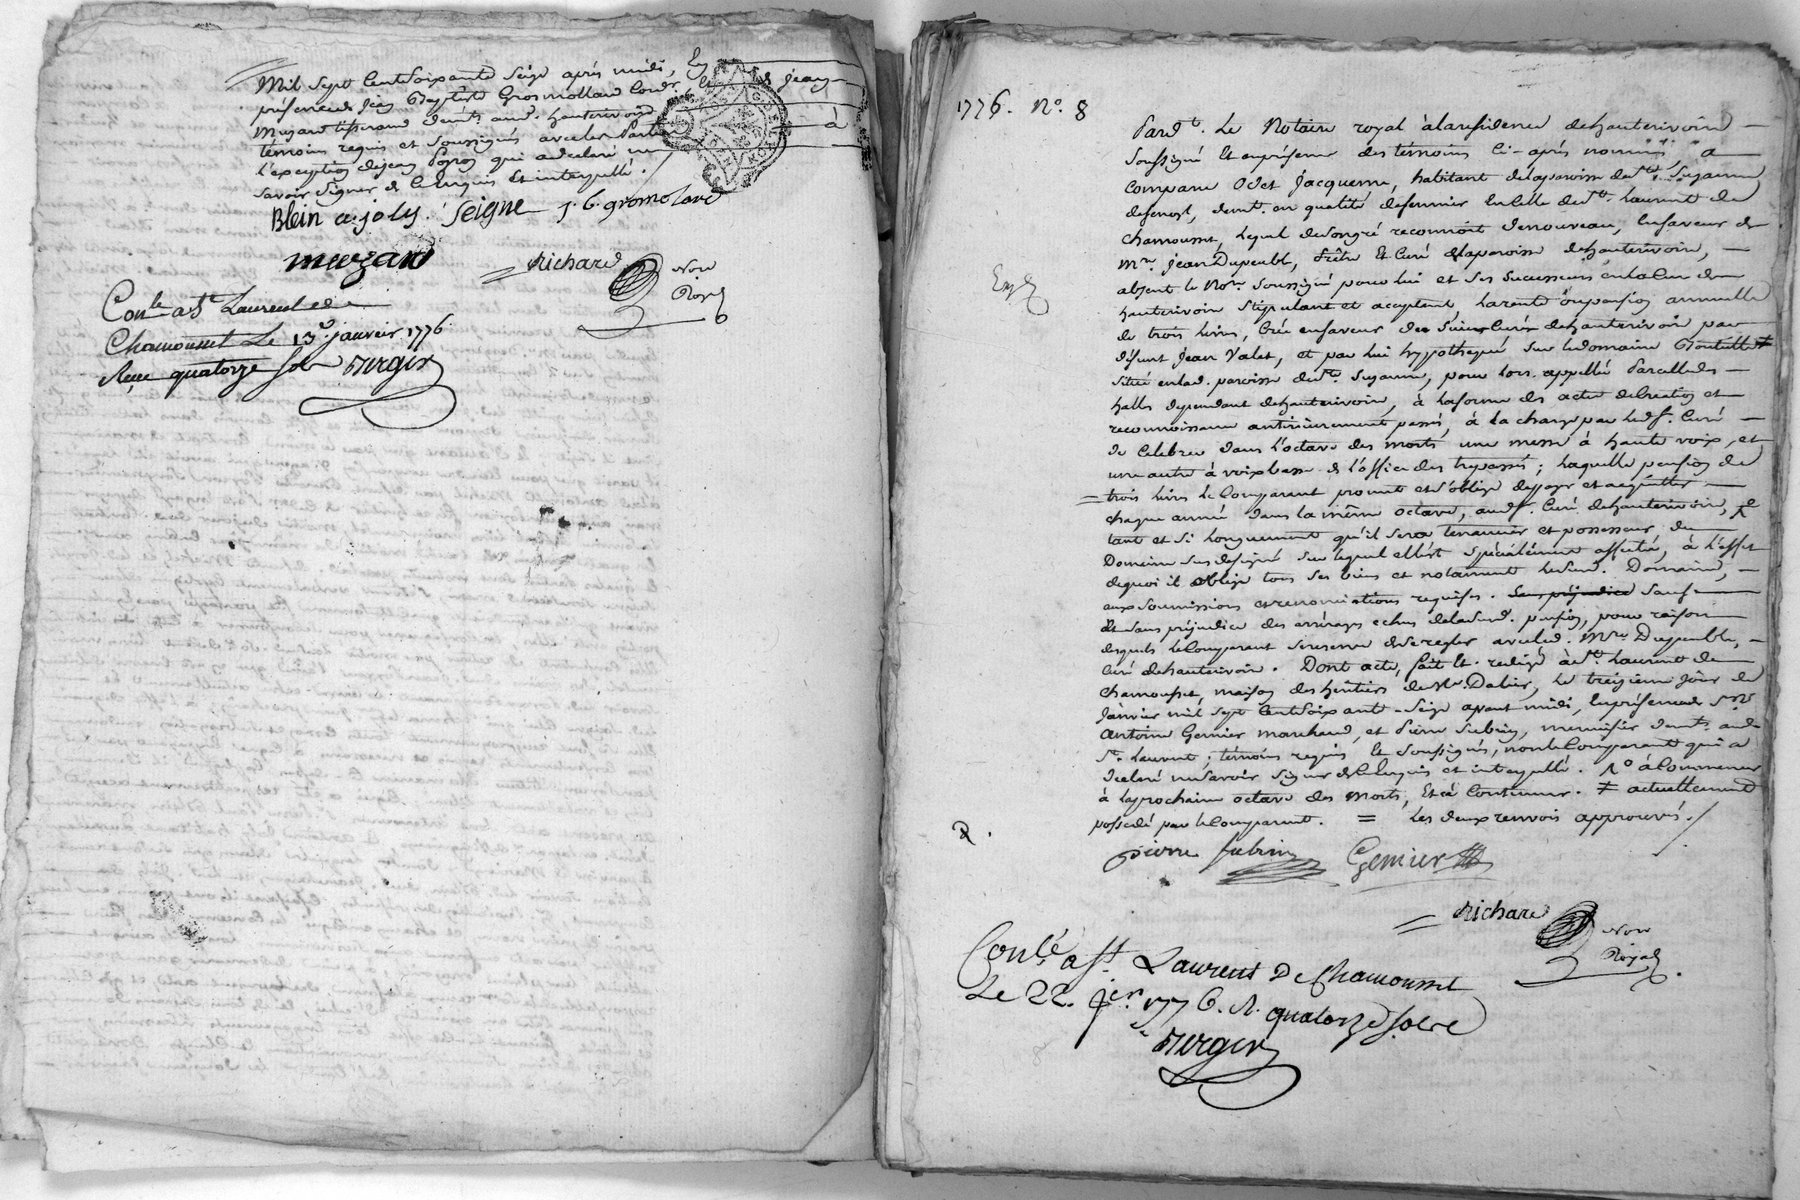 Mil sept Cent soixante seize après midi, En
présence de Jean Baptiste Grosmolland Cordr, Et de Jean
Muzard tisserand demts. aud. hauterivoire à
témoins requis et soussignés avec les Parties
l'exception dejean qui adeclaré ne
savoir signer de Cenquis Et interpellé.
Blein a. joly. Seigne j. b. gromoland
muzard Richard Nore Royal
Conlé a St Laurent de
Chamousset Le 13e janvier 1776
Reçu quatorze sols Verger
1776. No. 8
Pardt. Le Notaire royal àlaresidence dehauterivoire
soussigné Et enprésence des témoins Ci-après nommés a
comparu Odet Jacqueme, habitant delaparoisse deste. Suzanne
demt. en qualité defermier en Celle dest. Laurent de
Chamousset, lequel desongré reconnoit denouveau, Enfaveur de
Mre. Jean Dupeuble, Prêtre Et Curé delaparoisse dehauterivoire,
absent le Nore. soussigné pour lui et ses successeurs enlaCure de
hauterivoire stipulant et acceptant, la rente oupension annuelle
de trois livres, Crée enfaveur des sieurs Curés dehauterivoire par
défunt Jean Valet, et par lui hyppothequé sur ledomaine ≠
situé enlad. paroisse deste. Suzanne, pour lors appellé Parcelle des
halles dependant dehauterivoire, à laforme des actes deCreation et
reconnoissance antérieurement passés, à la charge par led. sr. Curé
de Celebrer dans l'octave des morts une messe à haute voix, et
une autre à voix basse & l'office des trepassés; laquelle pension de
trois livres le Comparant promet et s'oblige depayer et acquitter
chaque année dans la même octave, aud. sr. Curé dehauterivoire,
tant et si longuement qu'il sera tenancier et possesseur du
Domaine sus designé sur lequel elle est spécialement affectée, à l'effet
dequoi il oblige tous ses biens et notament ledit. Domaine,
aux soumissions et renonciations requises. sans préjudice sauf
Et sans préjudice des arrérages echus deladite. pension, pour raison
desquels le Comparant sereserve deseregler avecled. Mre Dupeuble,
Curé dehauterivoire. Dont acte, fait Et redigé àSt. Laurent de
Chamousset, maison des héritiers de Mr. Dalier, le treizieme jour de
Janvier mil sept Cent soixante-seize avant midi, Enprésence de Sr.
Antoine Gemier marchand, et Pierre Subrin, menuisier demts. aud.
St. Laurent; témoins requis Et soussignés, non le Comparant qui a
declaré nesavoir signer deCenquis et interpellé. à Commencer
à laprochaine octave des morts, Et à Continuer. ≠ actuellement
possedé par leComparant. = les deux renvois approuvés.
pierre Subrin Gemier
Richard Nore Royal
Conlé a St. Laurent De Chamousset
Le 22. jer. 1776. R. quatorze sols
Verger